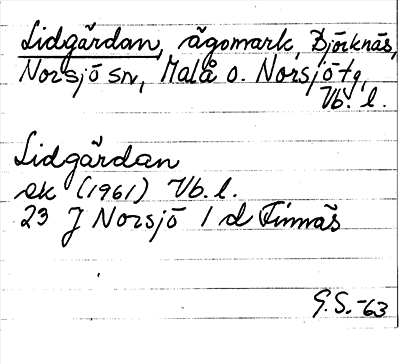 Lidgärdan, ägomark, Björknäs,
Norsjö sn, Malå o. Norsjö tg,
Vb. l.
Lidgärdan
ek (1961) Vb. l.
23 J Norsjö 1 d Finnäs
G.S.-63